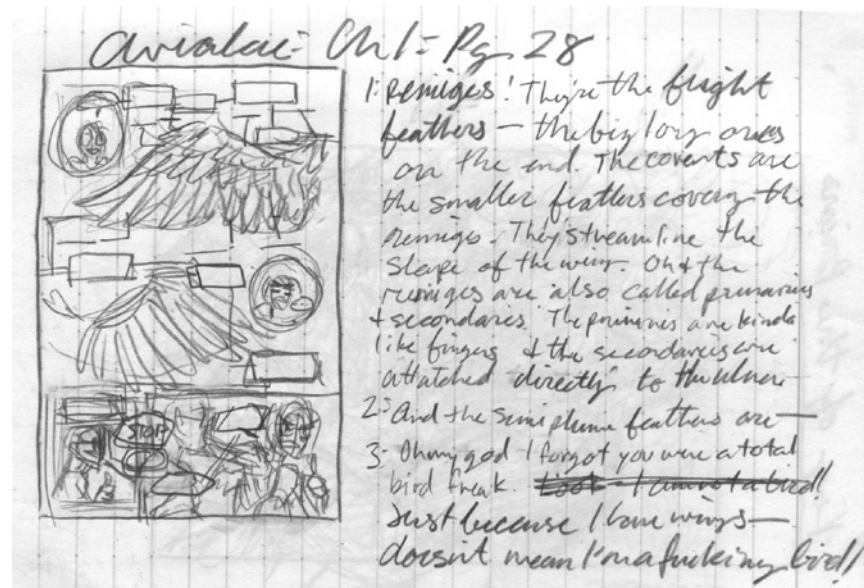 Avialae - Ch 1 - Pg. 28
1: Remiges! They're the flight
feathers — the big long ones
on the end. The coverts are
the smaller feathers covering the
remiges. They streamline the
shape of the wing. Oh & the
remiges are also called primaries
+ secondaries. The primaries are kinda
like fingers & the secondaries are
attatched directly to the ulna.
2: And the semiplume feathers are —
3: Oh my god I forgot you were a total
bird freak. Look - I am not a bird!!
Just because I have wings —
doesn't mean I'm a fucking bird!!
STOP